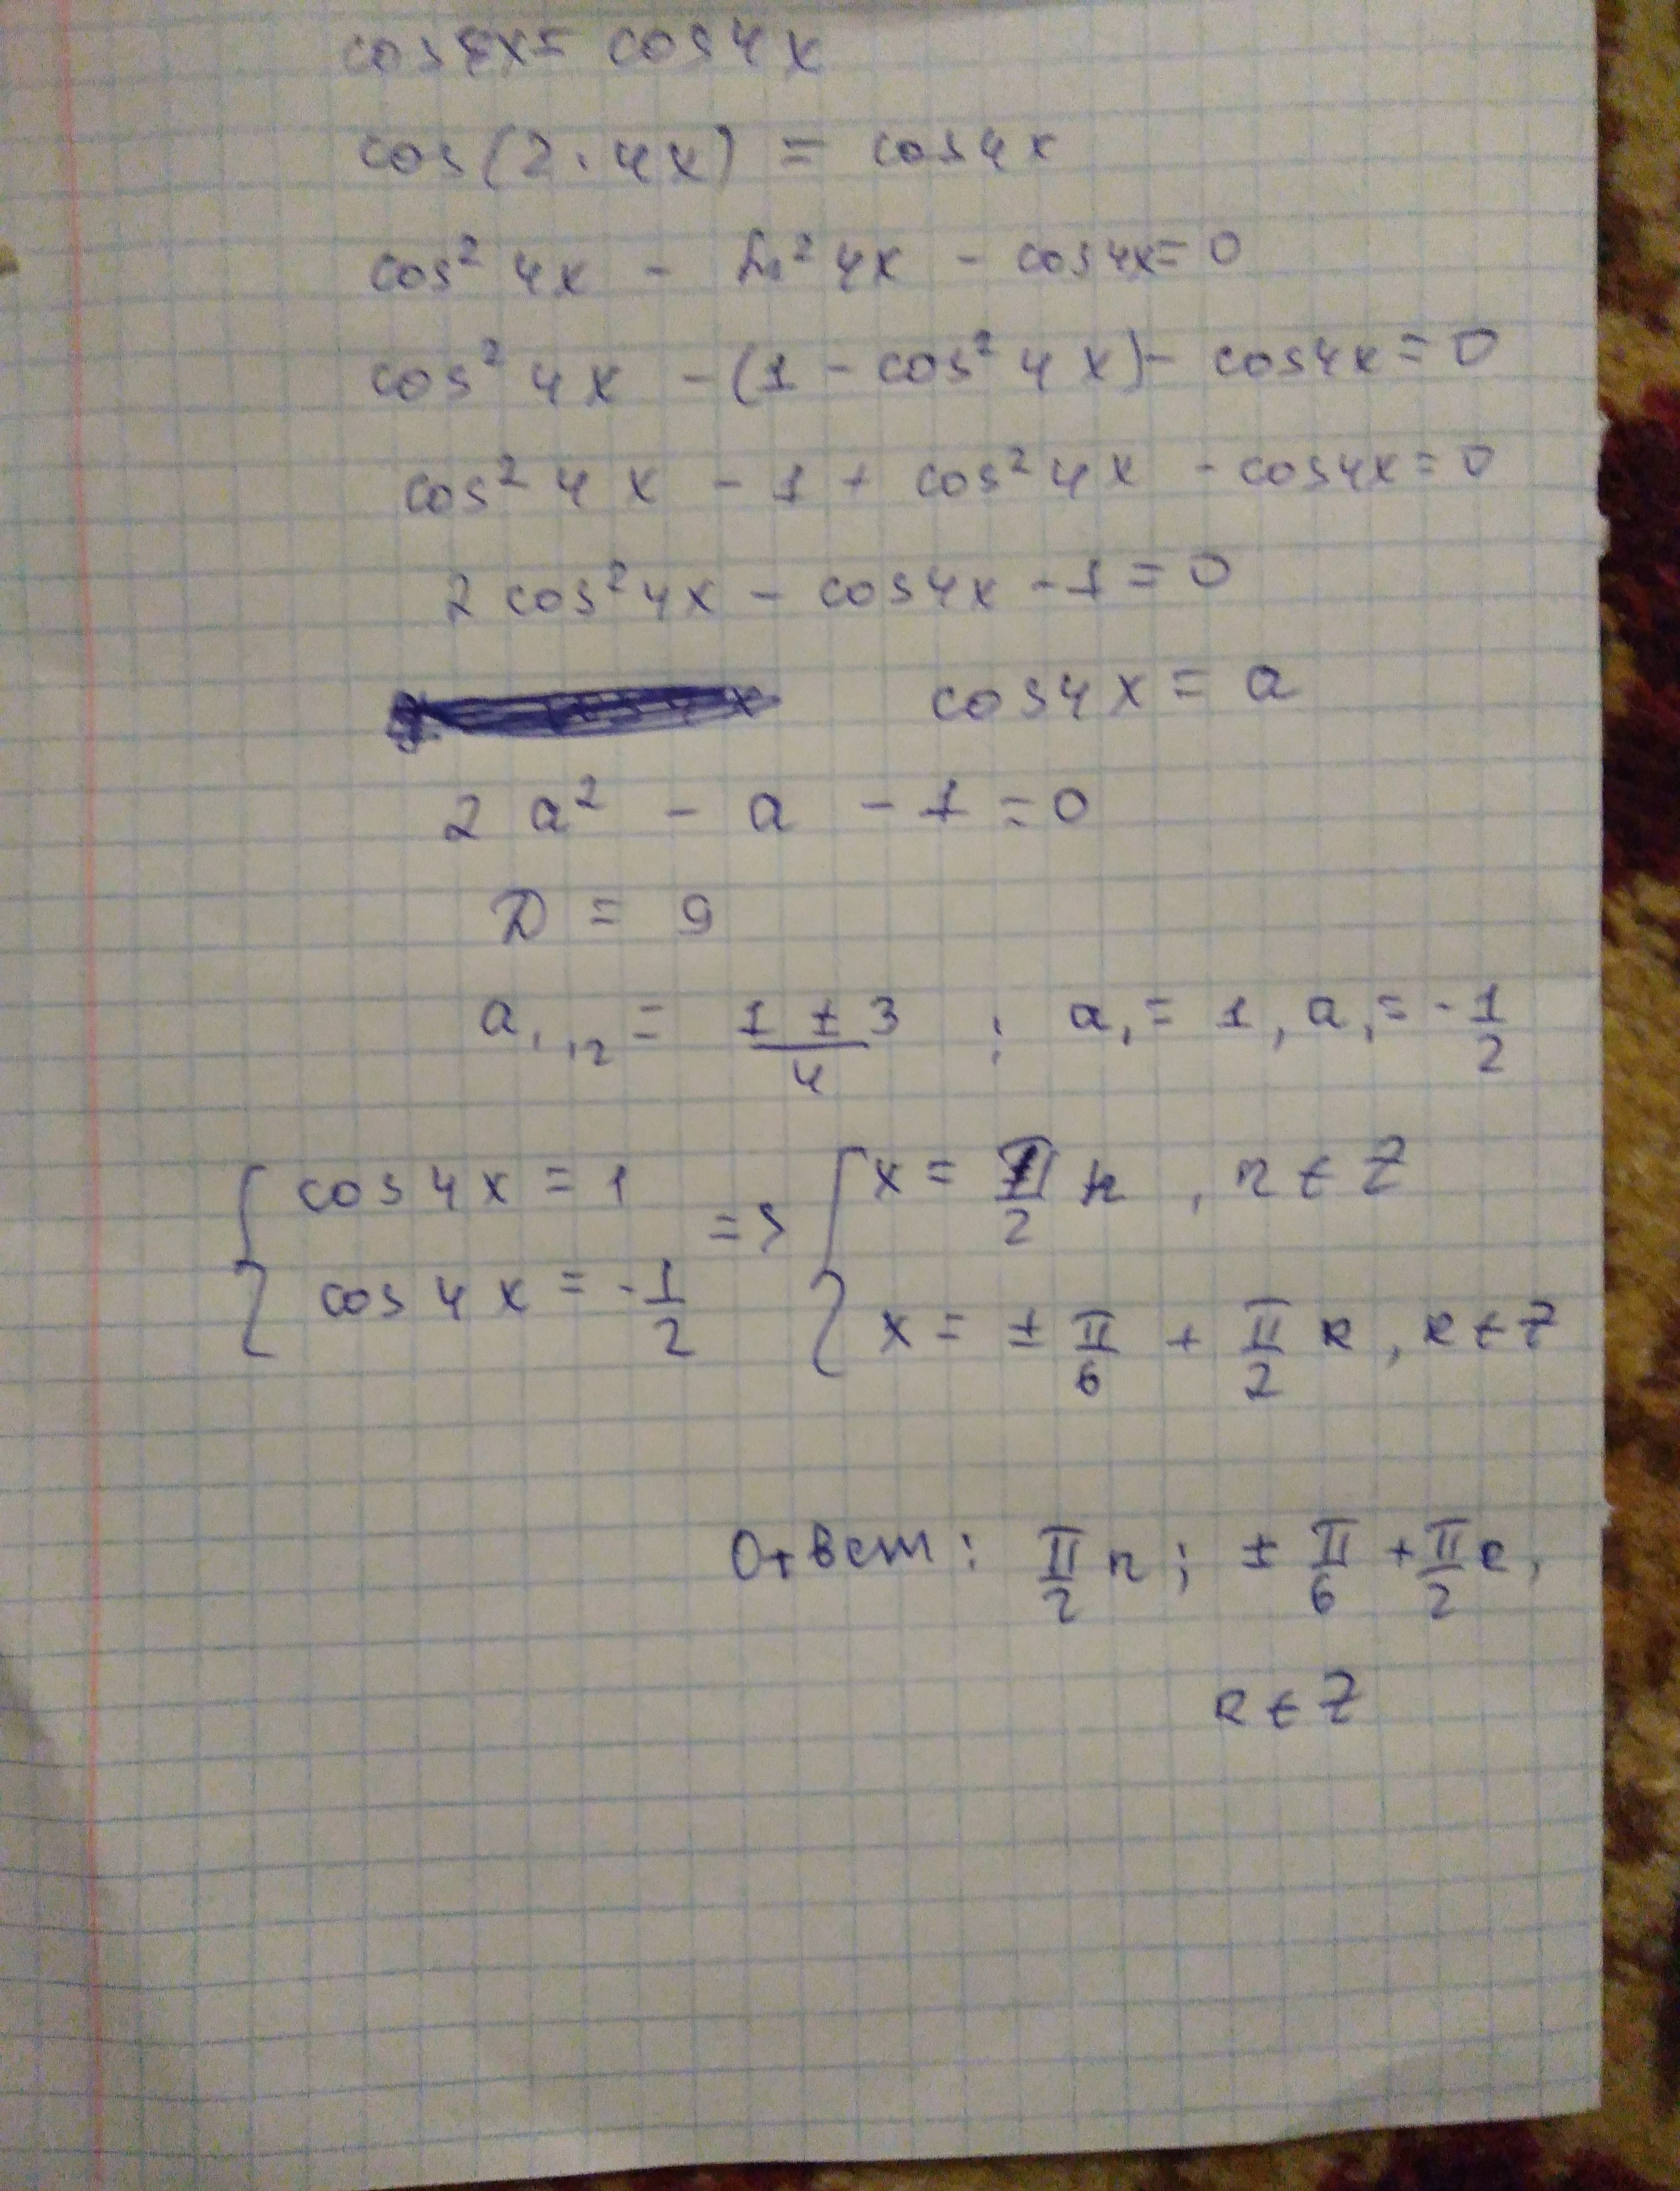 cos8x = cos4x
cos(2·4x) = cos4x
cos² 4x - sin² 4x - cos4x = 0
cos² 4x - (1 - cos² 4x) - cos4x = 0
cos² 4x - 1 + cos² 4x - cos4x = 0
2 cos² 4x - cos4x - 1 = 0
cos4x = a
2a² - a - 1 = 0
D = 9
a₁,₂ = (1 ± 3)/4 ; a₁ = 1, a₁ = -1/2
{ cos4x = 1 => { x = π/2 n, n ∈ Z
{ cos4x = -1/2 { x = ± π/6 + π/2 k, k ∈ Z
Ответ: π/2 n; ± π/6 + π/2 k,
k ∈ Z